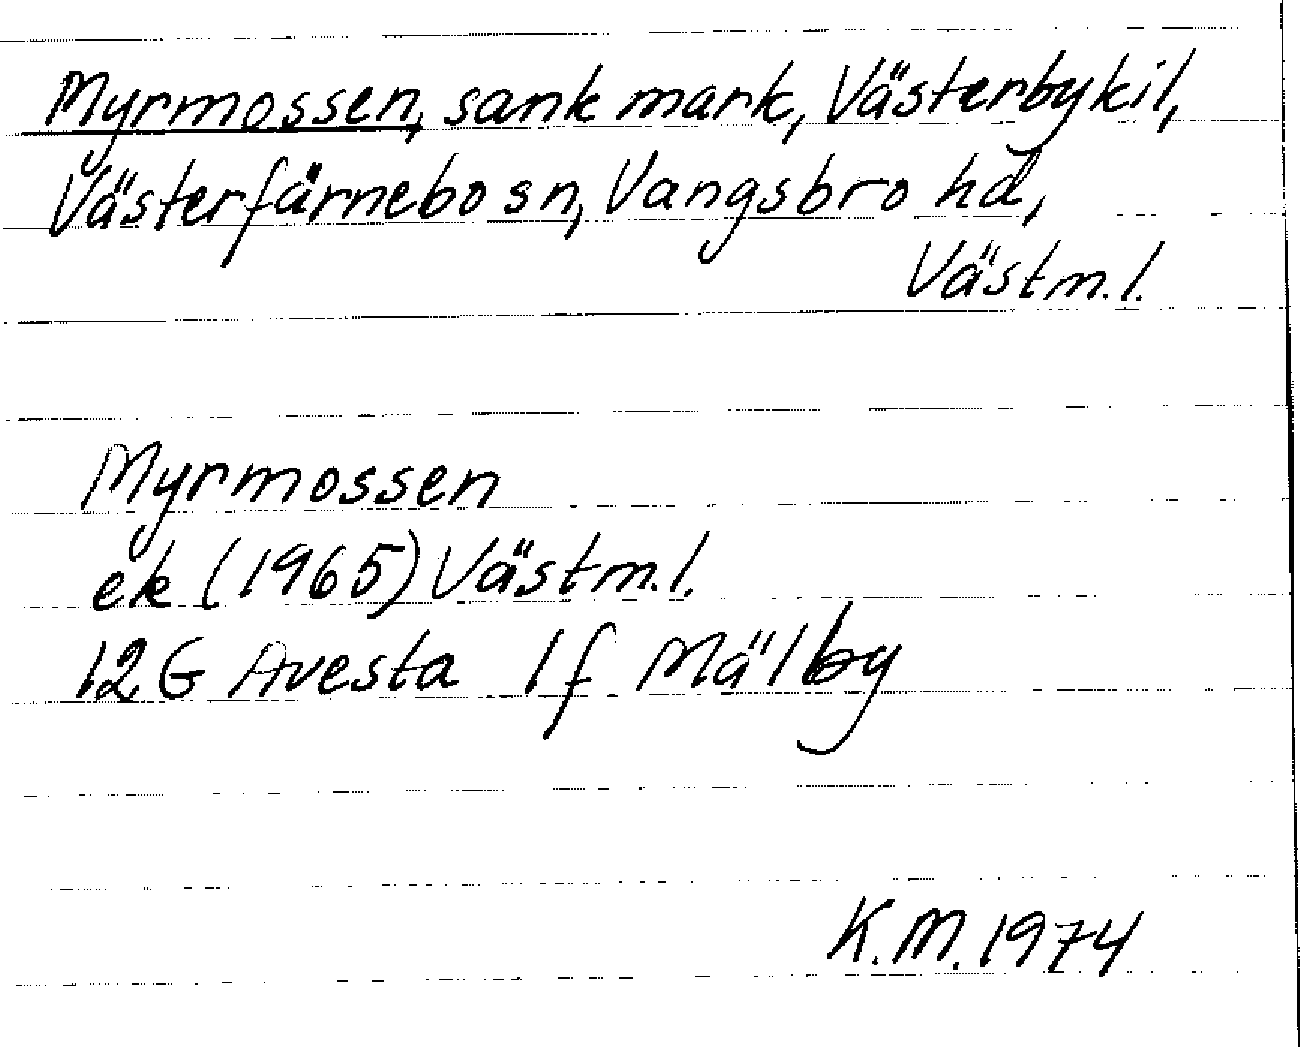 Myrmossen, sank mark, Västerbykil,
Västerfärnebo sn, Vangsbro hd,
Västm.l.
Myrmossen
ek (1965) Västm.l.
12G Avesta 1f Mälby
K.M. 1974